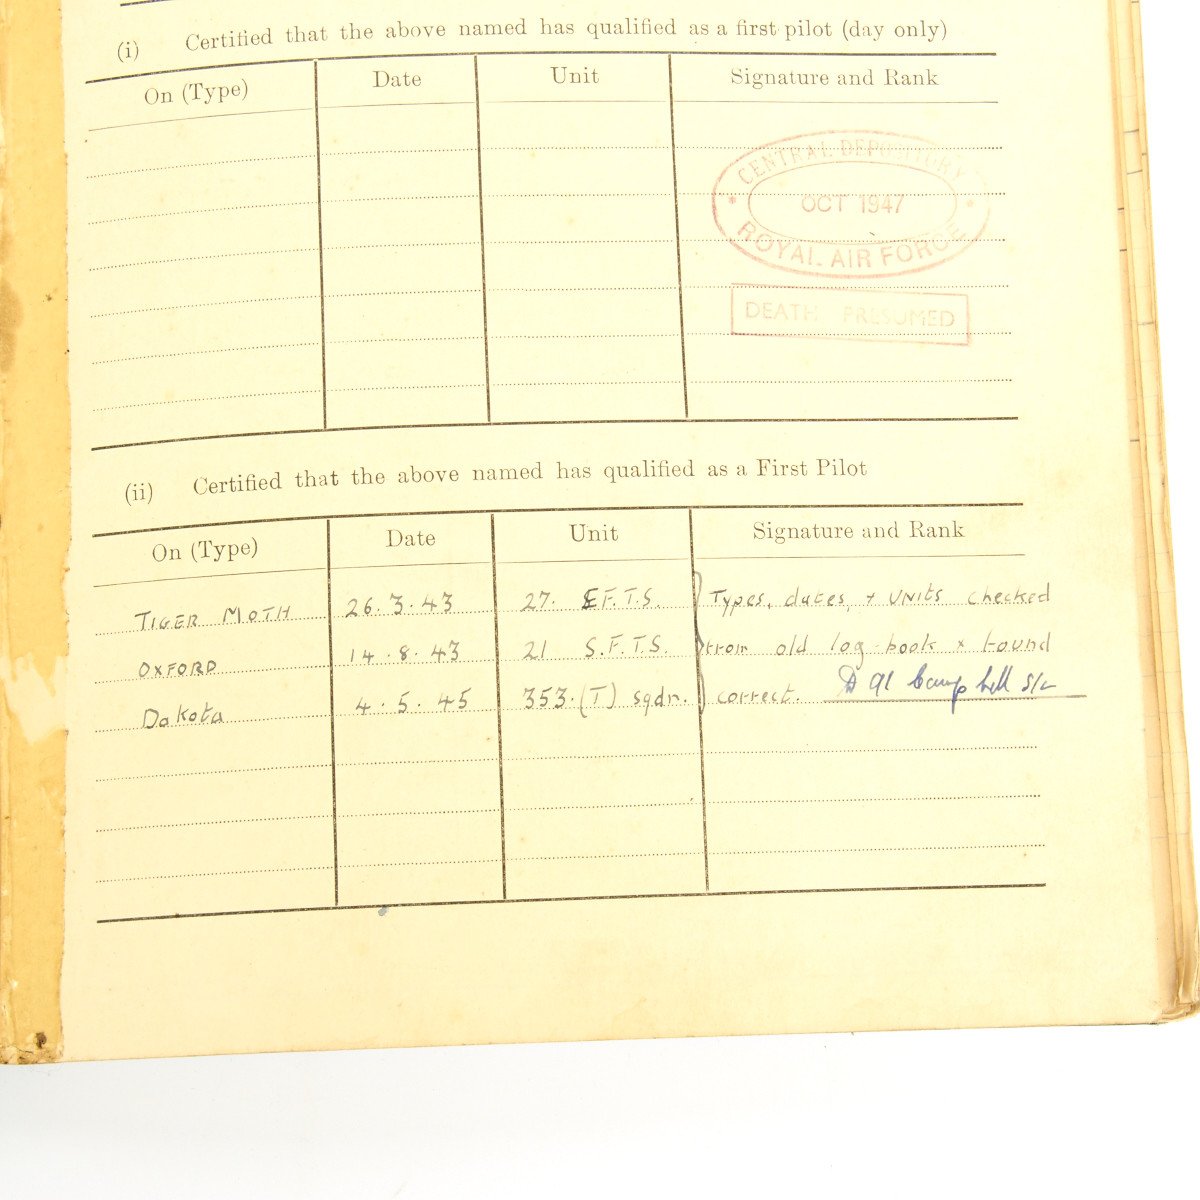 (i) Certified that the above named has qualified as a first pilot (day only)
On (Type) Date Unit Signature and Rank
CENTRAL DEPOSITORY
OCT 1947
ROYAL AIR FORCE
DEATH PRESUMED
(ii) Certified that the above named has qualified as a First Pilot
On (Type) Date Unit Signature and Rank
TIGER MOTH 26.3.43 27. E.F.T.S. Types, dates, + UNits checked
OXFORD 14.8.43 21 S.F.T.S. from old log-book & found
Dakota 4.5.45 353.(T) sqdn. correct. Campbell S/L